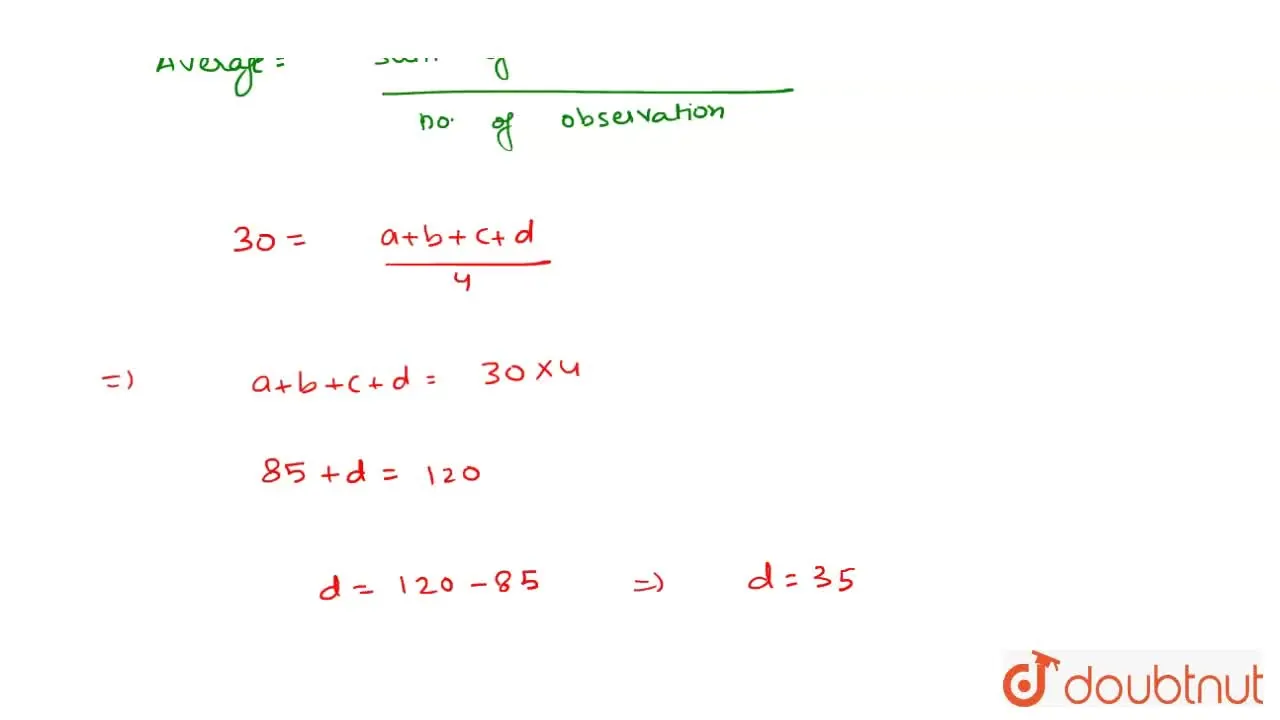 Average =
no. of observation
30 = a+b+c+d
4
=) a+b+c+d = 30 × 4
85 + d = 120
d = 120 - 85 =) d = 35
doubtnut